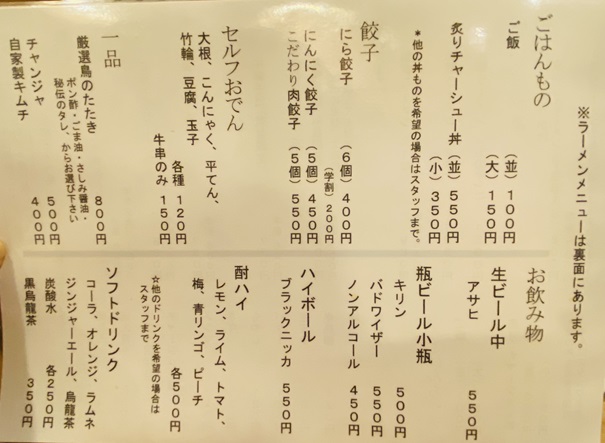 ※ラーメンメニューは裏面にあります。
ごはんもの
ご飯
(並)100円
(大)150円
炙りチャーシュー丼
(並)550円
(小)350円
*他の丼ものを希望の場合はスタッフまで。
餃子
にら餃子
(6個)400円
(学割)200円
にんにく餃子
(5個)450円
こだわり肉餃子
(5個)550円
セルフおでん
大根、こんにゃく、平てん、
竹輪、豆腐、玉子
各種 120円
牛串のみ 150円
一品
厳選鳥のたたき
800円
ポン酢・ごま油・さしみ醤油・
秘伝のタレ、からお選び下さい
チャンジャ
500円
自家製キムチ
400円
お飲み物
生ビール中
アサヒ
550円
瓶ビール小瓶
キリン
500円
バドワイザー
550円
ノンアルコール
450円
ハイボール
ブラックニッカ
550円
酎ハイ
レモン、ライム、トマト、
梅、青リンゴ、ピーチ
各500円
☆他のドリンクを希望の場合は
スタッフまで
ソフトドリンク
コーラ、オレンジ、ラムネ
ジンジャーエール、烏龍茶
炭酸水
各250円
黒烏龍茶
350円